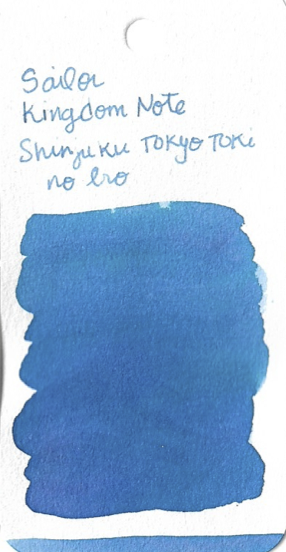 Sailor
Kingdom Note
Shinjuku Tokyo Toki
no iro